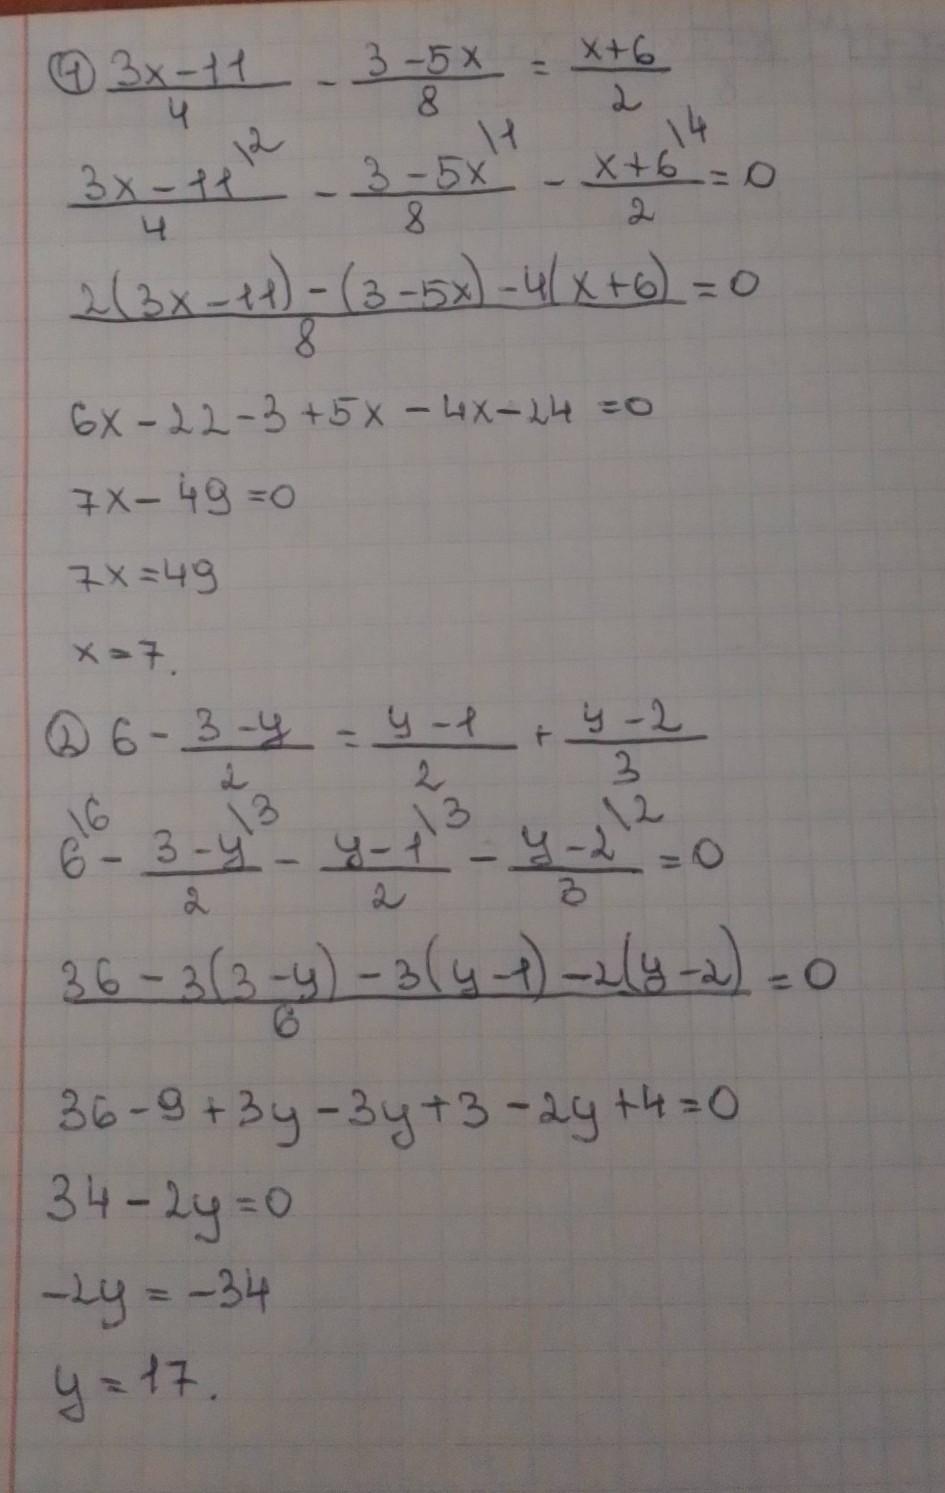 ① (3x-11)/4 - (3-5x)/8 = (x+6)/2
(3x-11)/4 \2 - (3-5x)/8 \1 - (x+6)/2 \4 = 0
(2(3x-11)-(3-5x)-4(x+6))/8 = 0
6x-22-3+5x-4x-24=0
7x-49=0
7x=49
x=7.
② 6 - (3-y)/2 = (y-1)/2 + (y-2)/3
6 \6 - (3-y)/2 \3 - (y-1)/2 \3 - (y-2)/3 \2 = 0
(36-3(3-y)-3(y-1)-2(y-2))/6 = 0
36-9+3y-3y+3-2y+4=0
34-2y=0
-2y=-34
y=17.